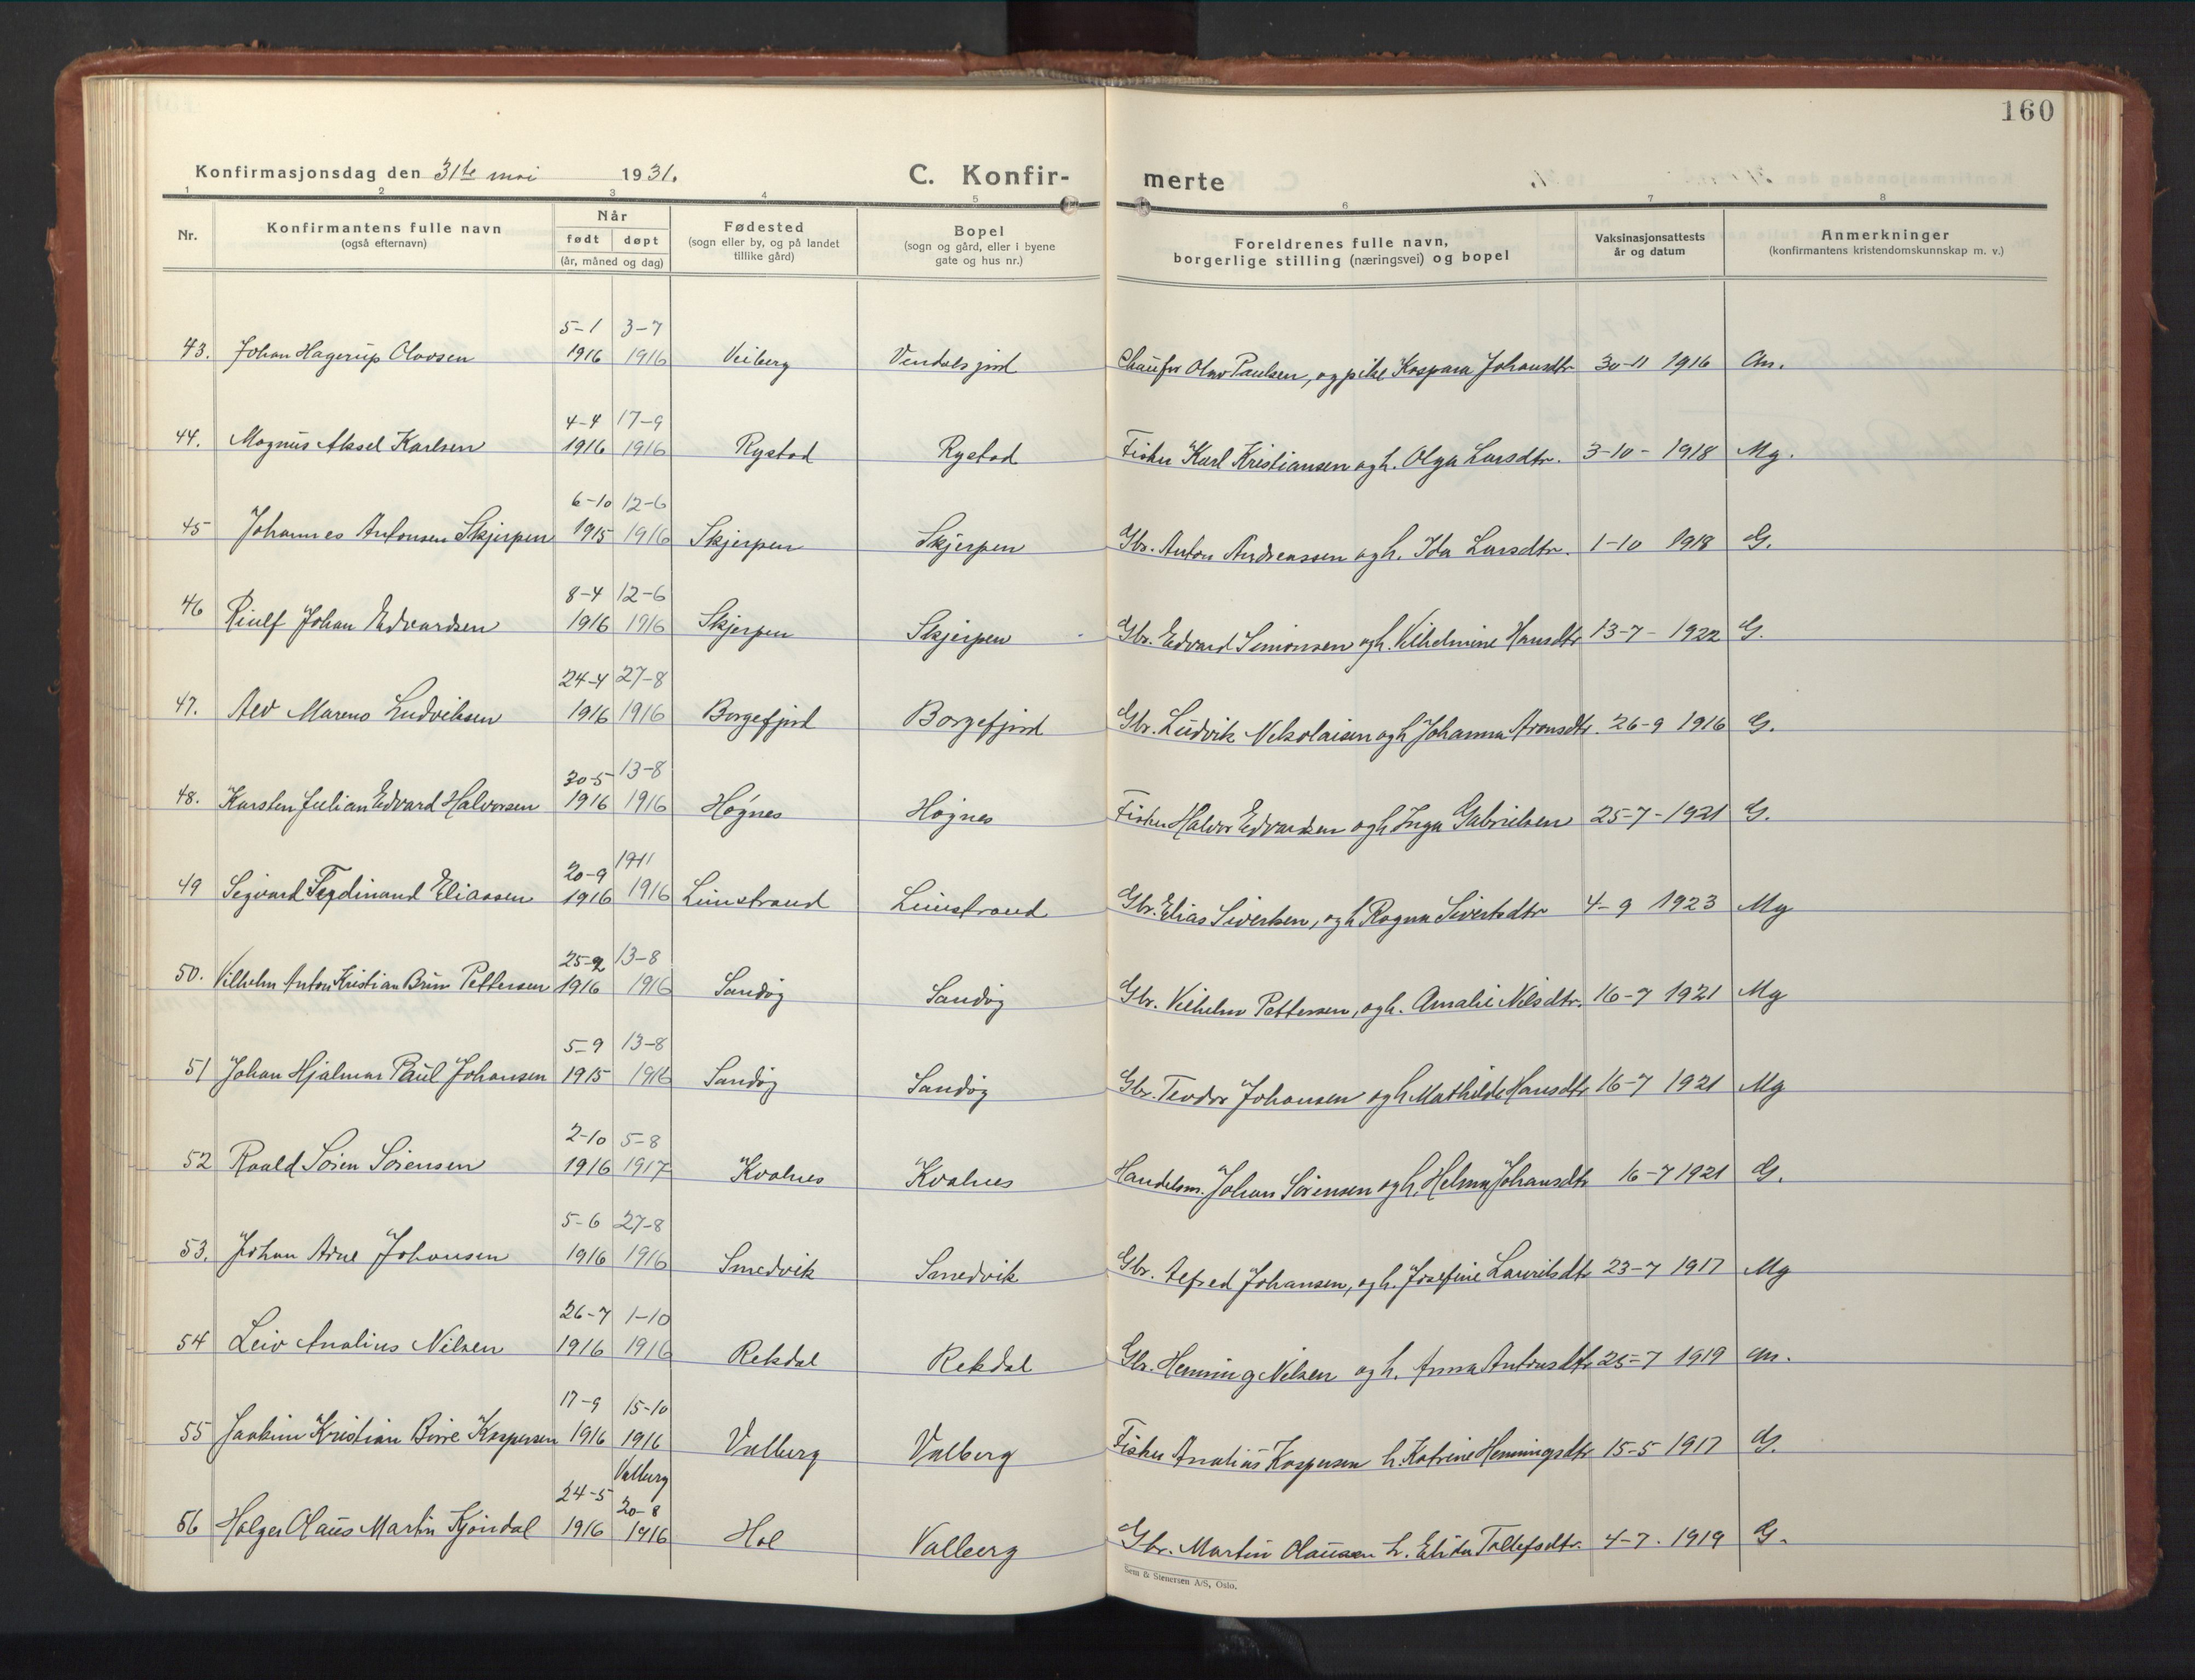 160
Konfirmasjonsdag den 31te mai 1931. C. Konfir- merte
1 2 3 4 5 6 7 8
Nr. Konfirmantens fulle navn (også efternavn) Når født døpt (år, måned og dag) Fødested (sogn eller by, og på landet tillike gård) Bopel (sogn og gård, eller i byene gate og hus nr.) Foreldrenes fulle navn, borgerlige stilling (næringsvei) og bopel Vaksinasjonsattests år og datum Anmerkninger (konfirmantens kristendomskunnskap m. v.)
5-1 3-7
43. Johan Hagerup Olavsen 1916 1916 Veiberg Vendalsjord Chaufør Olav Paulsen, og pike Kaspara Johansdtr 30-11 1916 An.
4-4 17-9
44. Magnus Aksel Karlsen 1916 1916 Rystad Rystad Fisker Karl Kristiansen og h. Olga Larsdtr. 3-10- 1918 Mg.
6-10 12-6
45 Johannes Antonsen Skjerpen 1915 1916 Skjerpen Skjerpen Gbr. Anton Andreassen og h. Ida Larsdtr. 1-10 1918 G.
8-4 12-6
46 Riulf Johan Edvardsen 1916 1916 Skjerpen Skjerpen Gbr. Edvard Simonsen og h. Vilhelmine Hansdtr 13-7- 1922 G.
24-4 27-8
47. Alv Mareno Ludviksen 1916 1916 Borgefjord Borgefjord Gbr. Ludvik Nikolaisen og h Johanna Aronsdtr. 26-9 1916 G.
30-5 13-8
48. Karsten Julian Edvard Halvorsen 1916 1916 Høgnes Høgnes Fisker Halvor Edvardsen og h Inga Gabrielsen 25-7-1921 G.
20-9 19-11
49 Sigvard Ferdinand Eliassen 1916 1916 Limstrand Limstrand Gbr. Elias Sivertsen, og h Ragna Sivertsdtr 4-9 1923 Mg
25-2 13-8
50. Vilhelm Anton Kristian Brun Pettersen 1916 1916 Sandøy Sandøy Gbr. Vilhelm Pettersen, og h. Amalie Nilsdtr. 16-7 1921 Mg
5-9 13-8
51 Johan Hjalmar Paul Johansen 1915 1916 Sandøy Sandøy Gbr. Teodor Johansen og h Mathilde Hansdtr 16-7 1921 Mg
2-10 5-8
52 Roald Søren Sørensen 1916 1917 Kvalnes Kvalnes Handelsm. Johan Sørensen og h. Helma Johansdtr 16-7 1921 G.
5-6 27-8
53. Johan Arne Johansen 1916 1916 Smedvik Smedvik Gbr. Alfred Johansen, og h. Josefine Lauritsdtr 23-7 1917 Mg
26-7 1-10
54 Leiv Analius Nilsen 1916 1916 Rekdal Rekdal Gbr. Henning Nilsen og h. Anna Antonsdtr 25-7 1919 An.
17-9 15-10
55 Joakim Kristian Børre Kaspersen 1916 1916 Valberg Valberg Fisker Analius Kaspersen h. Katrine Henningsdtr 15-5 1917 G.
24-5 Valberg 20-8
56 Holger Olaus Martin Kjøndal 1916 1916 Hol Valberg Gbr. Martin Olausen h. Elida Tollefsdtr. 4-7. 1919 G.
Sem & Stenersen A/S, Oslo.